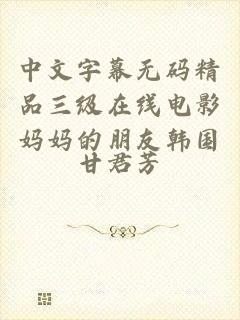 中文字幕无码精
品三级在线电影
妈妈的朋友韩国
甘君芳